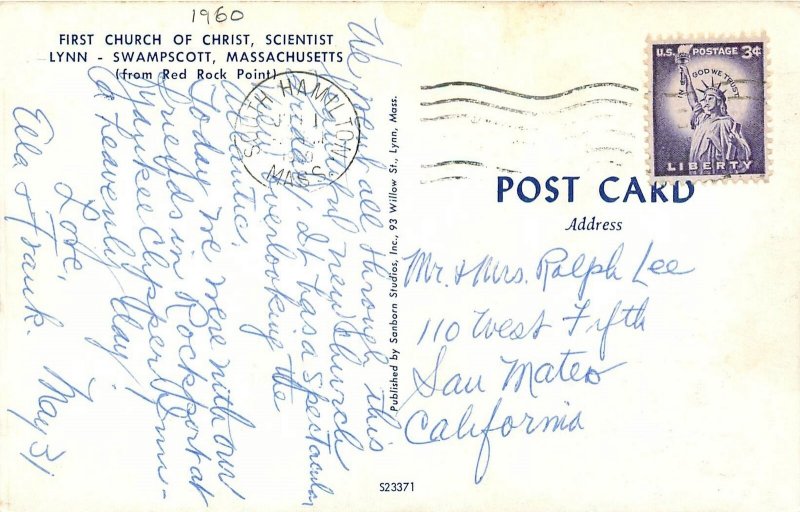 1960
FIRST CHURCH OF CHRIST, SCIENTIST
LYNN - SWAMPSCOTT, MASSACHUSETTS
(from Red Rock Point)
We went all through this
beautiful new Church
Sunday. It has a spectacular
view overlooking the
Atlantic.
Today we were with our
friends in Rockport at
Yankee Clipper Inn -
a heavenly day!
Love,
Ella & Frank. May 31
Published by Sanborn Studios, Inc., 93 Willow St., Lynn, Mass.
S23371
SOUTH HAMILTON
MASS.
U.S. POSTAGE 3¢
IN GOD WE TRUST
LIBERTY
POST CARD
Address
Mr. & Mrs. Ralph Lee
110 West Fifth
San Mateo
California